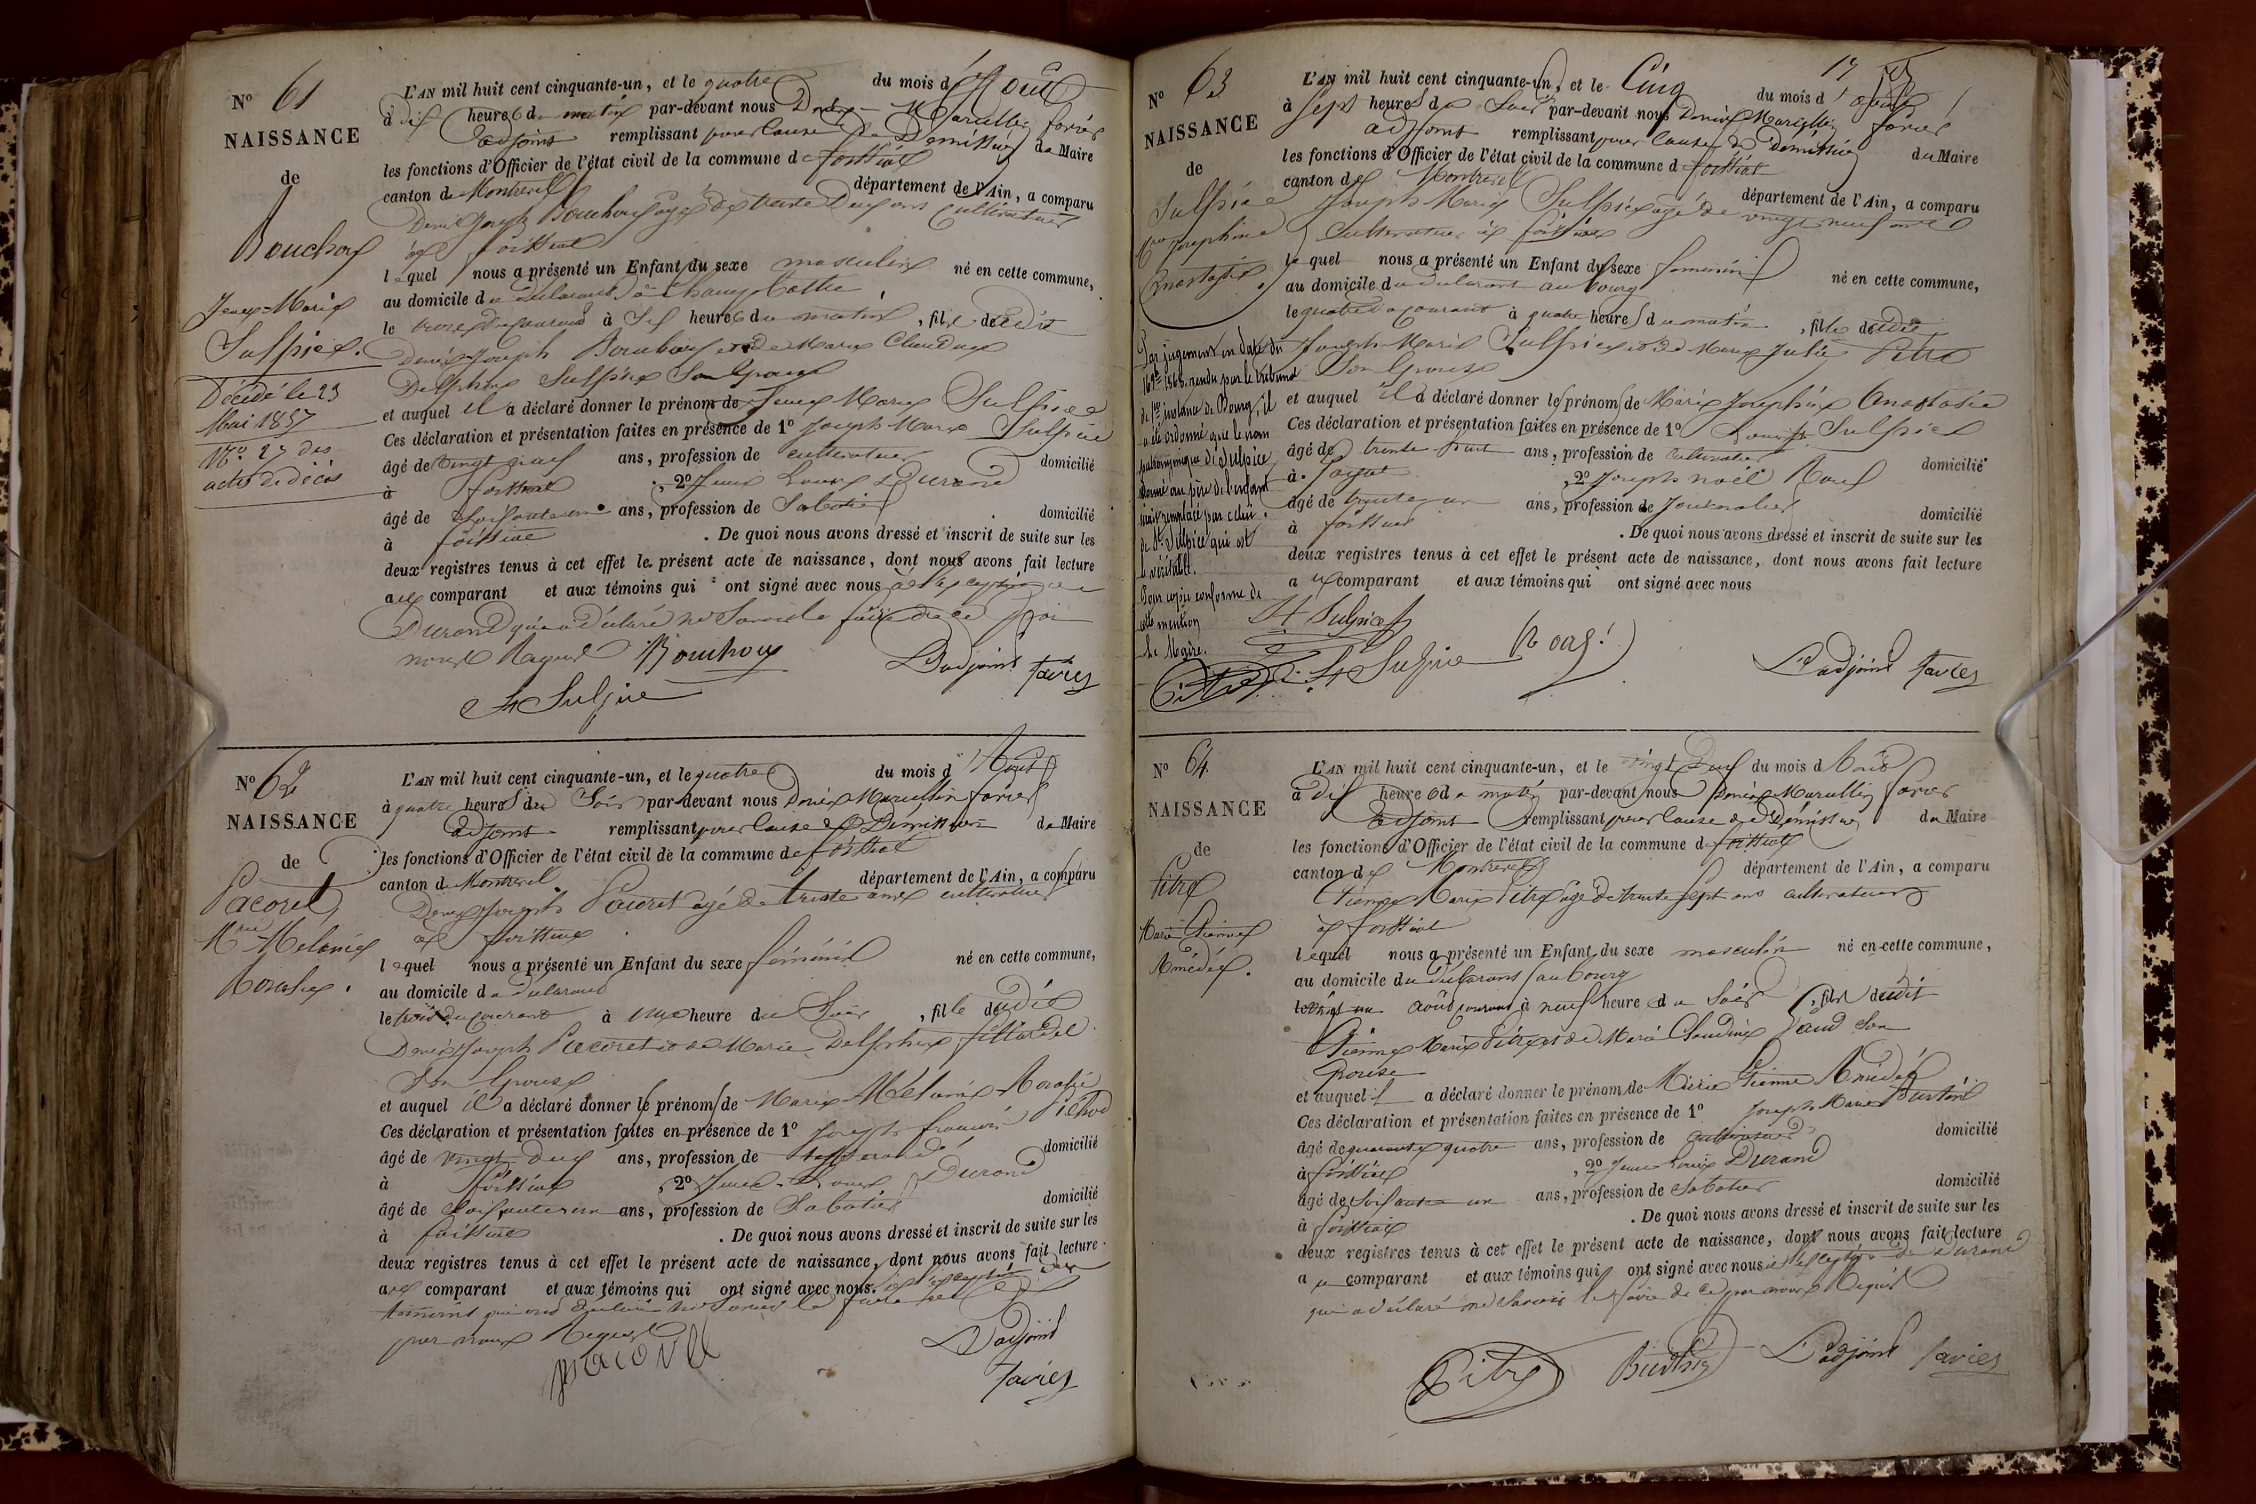 N° 61
NAISSANCE
de
Bouchoux
Jean-Marie
Sulpice.
Décédé le 23
Mai 1857
N° 27 des
actes de décès
L'AN mil huit cent cinquante-un, et le quatre du mois d'Août
à dix heures du matin par-devant nous Denis Marcellin favier
adjoint remplissant pour cause de Démission du Maire
les fonctions d'Officier de l'état civil de la commune de foissiat
canton de Montrevel département de l'Ain, a comparu
Denis Joseph Bouchoux âgé de trente Deux ans Cultivateur
à foissiat
lequel nous a présenté un Enfant du sexe masculin né en cette commune,
au domicile du déclarant à
le trois du courant à Six heures du matin, fils dudit
Denis Joseph Bouchoux et de Marie Claudine
Delphine Sulpice Son épouse
et auquel il a déclaré donner le prénom de Jean Marie Sulpice
Ces déclaration et présentation faites en présence de 1° Joseph Marie Sulpice
âgé de vingt neuf ans, profession de cultivateur domicilié
à foissiat, 2° Jean Louis Durand
âgé de Soixante un ans, profession de Sabotier domicilié
à foissiat . De quoi nous avons dressé et inscrit de suite sur les
deux registres tenus à cet effet le présent acte de naissance, dont nous avons fait lecture
aux comparant et aux témoins qui ont signé avec nous à l'exception de
Durand qui a déclaré ne Savoir le faire de ce par
nous Requis Bouchoux L'adjoint favier
St Sulpice
N° 62
NAISSANCE
de
Pacoret
Mie Mélanie
L'AN mil huit cent cinquante-un, et le quatre du mois d'Août
à quatre heures du Soir par-devant nous Denis Marcellin favier
adjoint remplissant pour Cause de Démission du Maire
les fonctions d'Officier de l'état civil de la commune de foissiat
canton de Montrevel département de l'Ain, a comparu
Denis Joseph Pacoret âgé de trente ans cultivateur
à foissiat
lequel nous a présenté un Enfant du sexe féminin né en cette commune,
au domicile du déclarant
le trois du courant à une heure du Soir, fille dudit
Denis Joseph Pacoret et de Marie Delphine
Son épouse
et auquel il a déclaré donner le prénom de Marie Mélanie
Ces déclaration et présentation faites en présence de 1° Joseph
âgé de vingt Deux ans, profession de domicilié
à foissiat, 2° Jean-Louis Durand
âgé de Soixante un ans, profession de Sabotier domicilié
à foissiat . De quoi nous avons dressé et inscrit de suite sur les
deux registres tenus à cet effet le présent acte de naissance, dont nous avons fait lecture
aux comparant et aux témoins qui ont signé avec nous à l'exception des
témoins qui ont déclaré ne Savoir le faire de ce
par nous Requis L'adjoint
pacoret favier
17
N° 63
NAISSANCE
de
Sulpice
Mie Josephine
Anastasie.
Par jugement en date du
rendu par le tribunal
de 1re instance de Bourg, il
a été ordonné que le nom
patronymique de Sulpice
donné au père de l'enfant
soit remplacé par celui
de St Sulpice qui est
le véritable.
Pour copie conforme de
cette mention
Le Maire.
L'AN mil huit cent cinquante-un, et le Cinq du mois d'août
à Sept heures du Soir par-devant nous Denis Marcellin favier
adjoint remplissant pour Cause de Démission du Maire
les fonctions d'Officier de l'état civil de la commune de foissiat
canton de Montrevel département de l'Ain, a comparu
Joseph Marie Sulpice âgé de vingt neuf ans
Cultivateur à foissiat
lequel nous a présenté un Enfant du sexe feminin né en cette commune,
au domicile du déclarant au bourg
le quatre du courant à quatre heures du matin, fille dudit
Joseph Marie Sulpice et de Marie Julie Pitre
Son épouse
et auquel il a déclaré donner le prénom de Marie Joséphine Anastasie
Ces déclaration et présentation faites en présence de 1° Sulpice
âgé de trente huit ans, profession de cultivateur domicilié
à, 2° Joseph noël
âgé de trente un ans, profession de Journalier domicilié
à foissiat . De quoi nous avons dressé et inscrit de suite sur les
deux registres tenus à cet effet le présent acte de naissance, dont nous avons fait lecture
aux comparant et aux témoins qui ont signé avec nous
St Sulpice
St Sulpice L'adjoint favier
N° 64.
NAISSANCE
de
Pitre
Marie Etienne
Amédée.
L'AN mil huit cent cinquante-un, et le vingt Deux du mois d'Août
à dix heures du matin par-devant nous Denis Marcellin favier
adjoint remplissant pour Cause de Démission du Maire
les fonctions d'Officier de l'état civil de la commune de foissiat
canton de Montrevel département de l'Ain, a comparu
Etienne Marie Pitre âgé de trente Sept ans cultivateur
à foissiat
lequel nous a présenté un Enfant du sexe masculin né en cette commune,
au domicile du déclarant au bourg
le vingt un août courant à neuf heure du Soir, fils dudit
Etienne Marie Pitre et de Marie Claudine Paud Son
épouse
et auquel il a déclaré donner le prénom de Marie Etienne Amédée
Ces déclaration et présentation faites en présence de 1° Joseph Marie
âgé de quarante quatre ans, profession de cultivateur domicilié
à foissiat, 2° Jean Louis Durand
âgé de Soixante un ans, profession de Sabotier domicilié
à foissiat . De quoi nous avons dressé et inscrit de suite sur les
deux registres tenus à cet effet le présent acte de naissance, dont nous avons fait lecture
au comparant et aux témoins qui ont signé avec nous à l'exception de Durand
qui a déclaré ne Savoir le faire de ce par nous Requis
Pitre L'adjoint favier